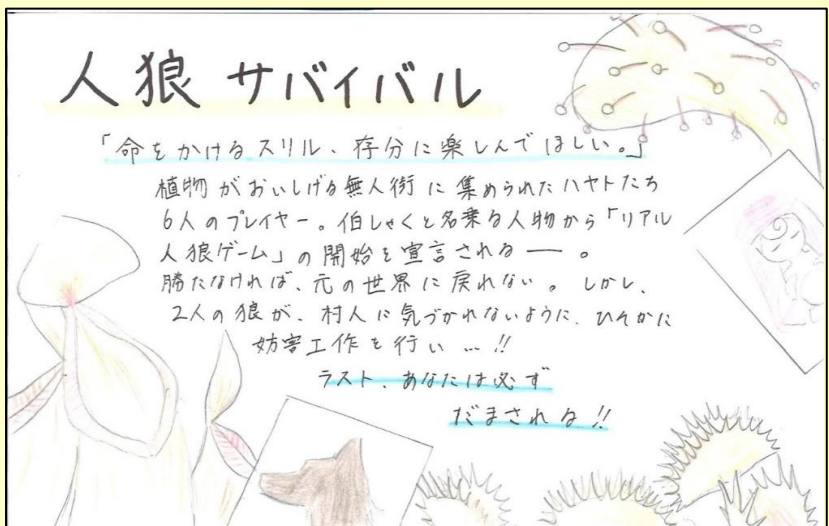 人狼 サバイバル
「命をかけるスリル、存分に楽しんでほしい。」
植物がおいしげる無人街に集められたハヤトたち
6人のプレイヤー。伯しゃくと名乗る人物から「リアル
人狼ゲーム」の開始を宣言される――。
勝たなければ、元の世界に戻れない。しかし、
2人の狼が、村人に気づかれないように、ひそかに
妨害工作を行い…!!
ラスト、あなたは必ず
だまされる!!